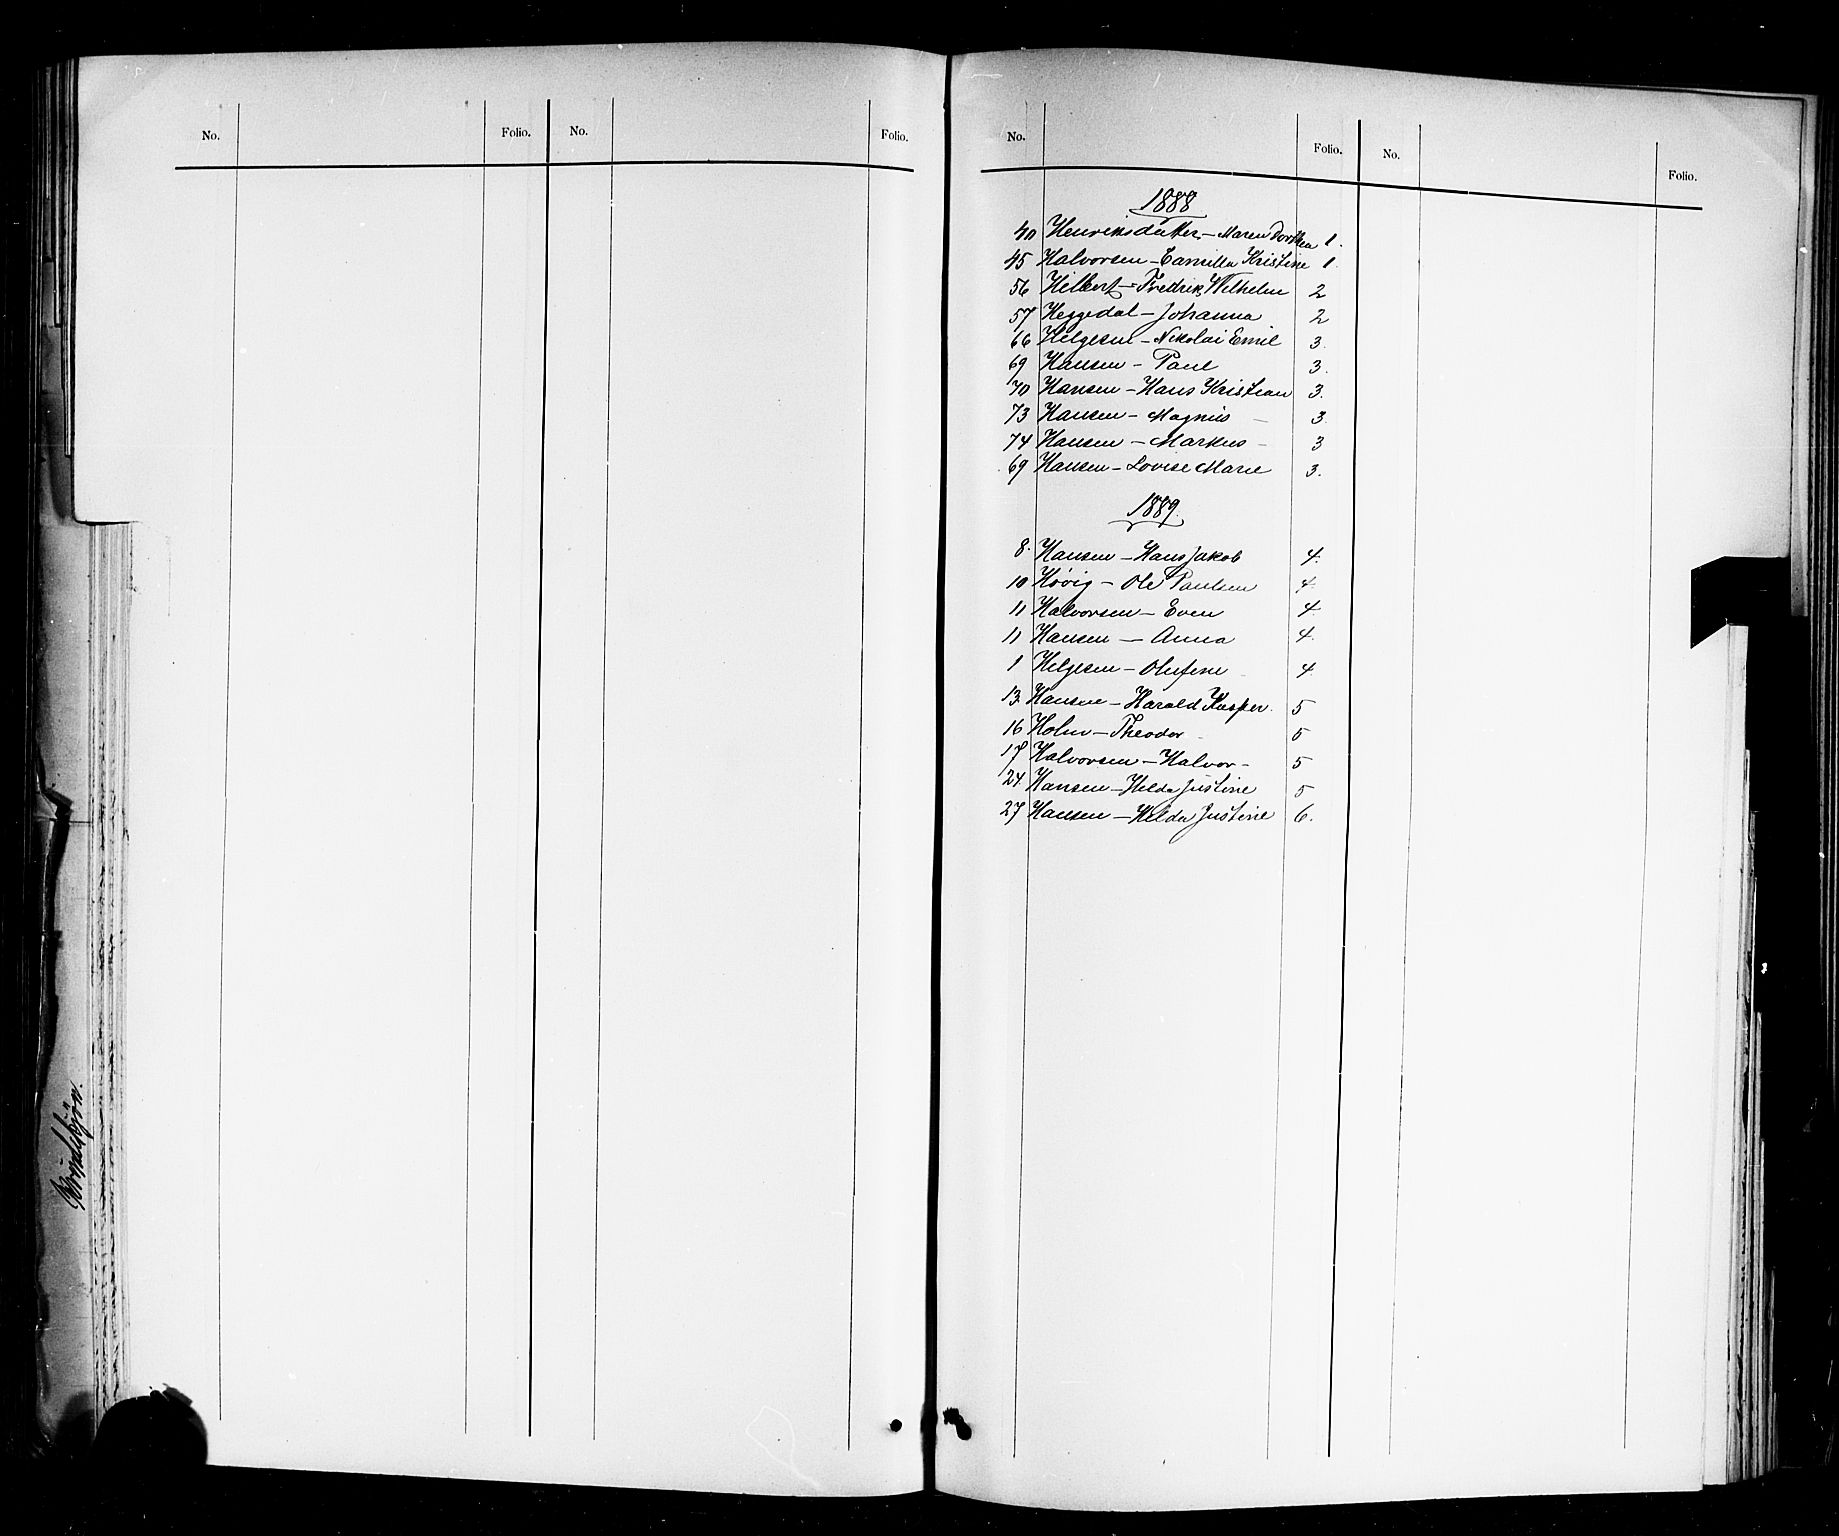 No. Folio. No. Folio.
No. Folio. No. Folio.
1888
40 Henriksdatter - Maren Dorthea 1.
45 Halvorsen - Camilla Kristine 1.
56 Hilbert - Fredrik Wilhelm 2
57 Heggedal - Johanna 2
66 Helgesen - Nikolai Emil 3.
69 Hansen - Paul 3.
70 Hansen - Hans Kristian 3.
73 Hansen - Magnus - 3.
74 Hansen - Markus - 3
69 Hansen - Lovise Marie 3.
1889.
8. Hansen - Hans Jakob 4.
10 Høvig - Ole Paulsen 4.
11 Halvorsen - Even 4
11 Hansen - Anna 4.
1 Helgesen - Olufine 4.
13. Hansen - Harald Kasper. 5
16 Holm - Theodor 5
17 Halvorsen - Halvor - 5
24 Hansen - Hilda Justine 5
27 Hansen - Hilda Justine 6.